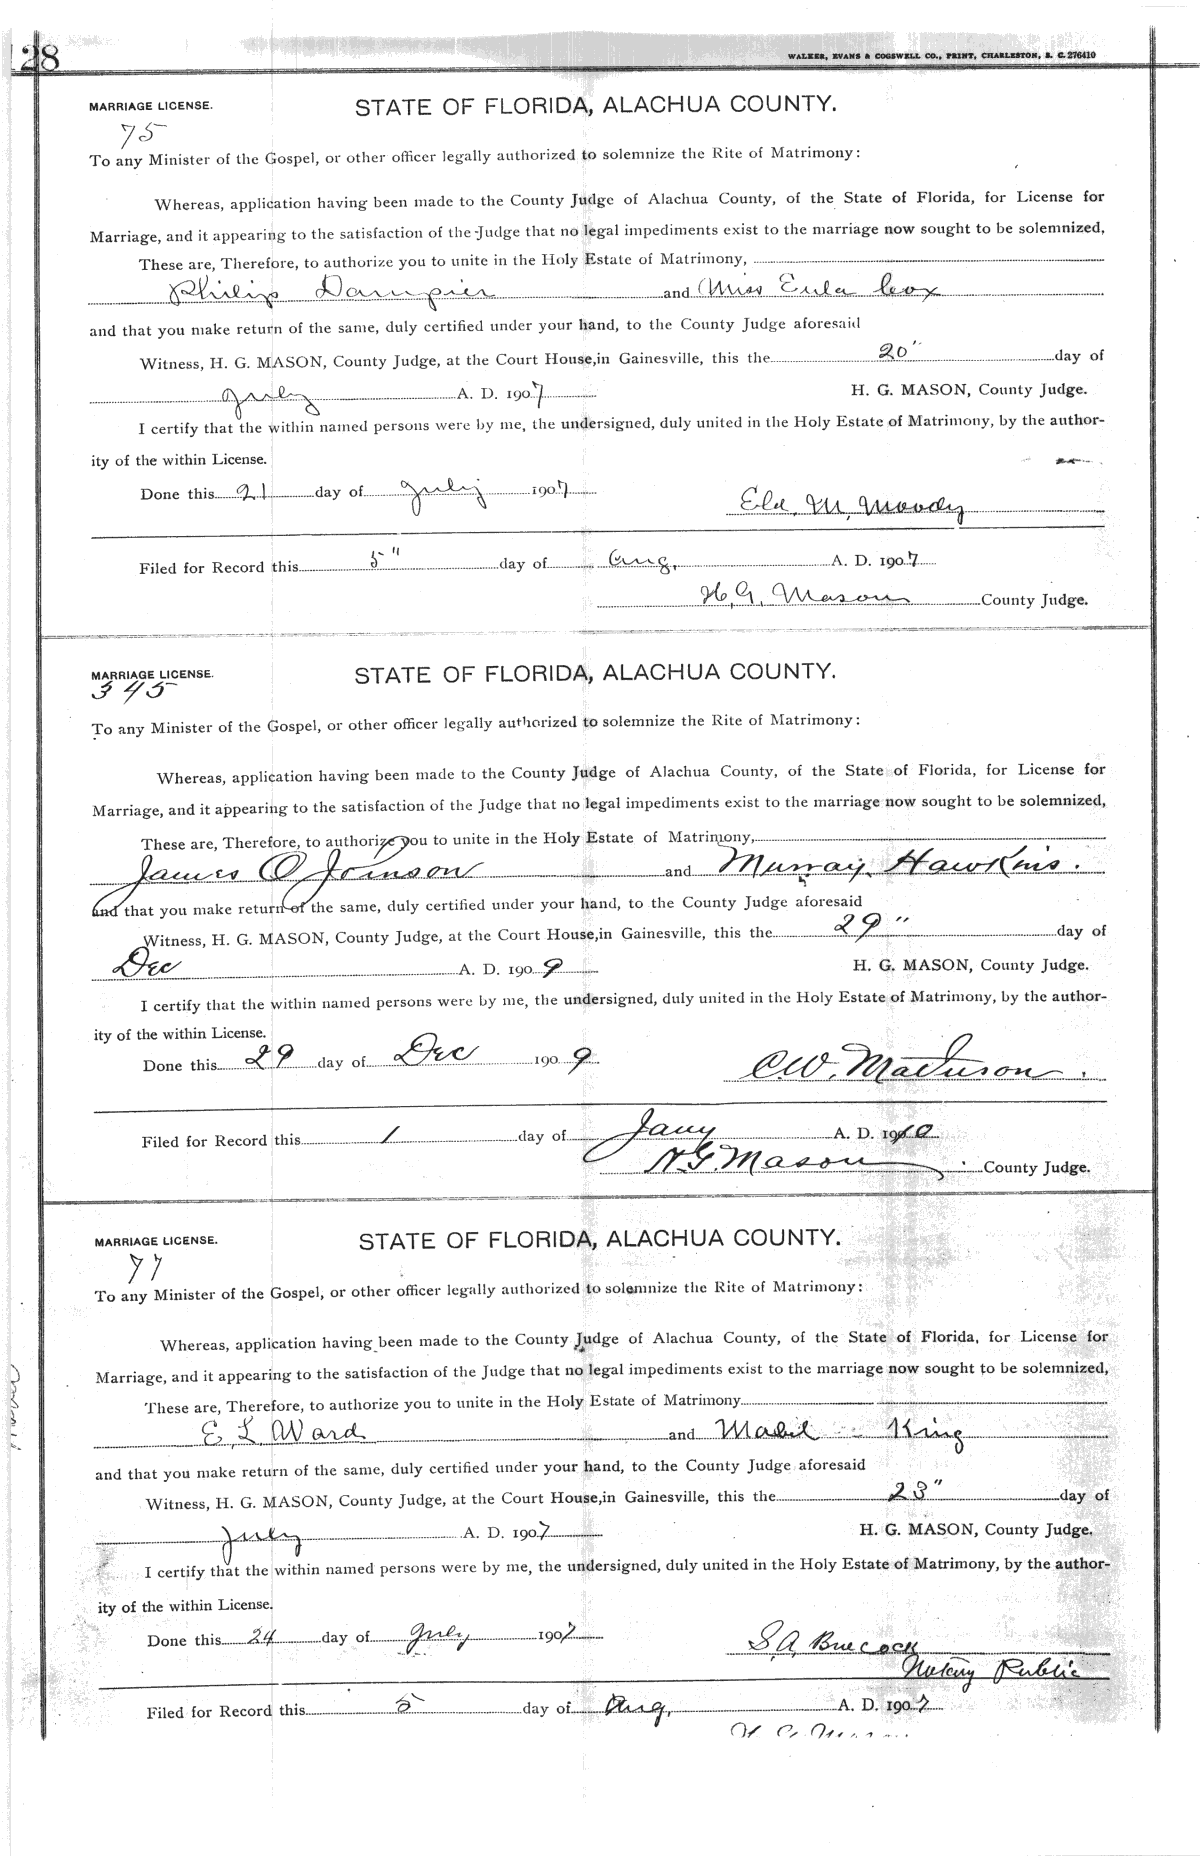 128
WALKER, EVANS & COGSWELL CO., PRINT, CHARLESTON, S. C. 276410
MARRIAGE LICENSE. STATE OF FLORIDA, ALACHUA COUNTY.
75
To any Minister of the Gospel, or other officer legally authorized to solemnize the Rite of Matrimony:
Whereas, application having been made to the County Judge of Alachua County, of the State of Florida, for License for
Marriage, and it appearing to the satisfaction of the Judge that no legal impediments exist to the marriage now sought to be solemnized,
These are, Therefore, to authorize you to unite in the Holy Estate of Matrimony,
Philip Dampier and Miss Eula Cox
and that you make return of the same, duly certified under your hand, to the County Judge aforesaid
Witness, H. G. MASON, County Judge, at the Court House, in Gainesville, this the 20" day of
July A. D. 1907 H. G. MASON, County Judge.
I certify that the within named persons were by me, the undersigned, duly united in the Holy Estate of Matrimony, by the author-
ity of the within License.
Done this 21 day of July 1907
Eld. M. Moody
Filed for Record this 5" day of Aug. A. D. 1907
H. G. Mason County Judge.
MARRIAGE LICENSE. STATE OF FLORIDA, ALACHUA COUNTY.
345
To any Minister of the Gospel, or other officer legally authorized to solemnize the Rite of Matrimony:
Whereas, application having been made to the County Judge of Alachua County, of the State of Florida, for License for
Marriage, and it appearing to the satisfaction of the Judge that no legal impediments exist to the marriage now sought to be solemnized,
These are, Therefore, to authorize you to unite in the Holy Estate of Matrimony,
James O Joinson and Murray Hawkins.
and that you make return of the same, duly certified under your hand, to the County Judge aforesaid
Witness, H. G. MASON, County Judge, at the Court House, in Gainesville, this the 29" day of
Dec A. D. 1909 H. G. MASON, County Judge.
I certify that the within named persons were by me, the undersigned, duly united in the Holy Estate of Matrimony, by the author-
ity of the within License.
Done this 29 day of Dec 1909
C. W.
Filed for Record this 1 day of Jany A. D. 1910
H. G. Mason County Judge.
MARRIAGE LICENSE. STATE OF FLORIDA, ALACHUA COUNTY.
77
To any Minister of the Gospel, or other officer legally authorized to solemnize the Rite of Matrimony:
Whereas, application having been made to the County Judge of Alachua County, of the State of Florida, for License for
Marriage, and it appearing to the satisfaction of the Judge that no legal impediments exist to the marriage now sought to be solemnized,
These are, Therefore, to authorize you to unite in the Holy Estate of Matrimony
E. L. Ward and Mabel King
and that you make return of the same, duly certified under your hand, to the County Judge aforesaid
Witness, H. G. MASON, County Judge, at the Court House, in Gainesville, this the 23" day of
July A. D. 1907 H. G. MASON, County Judge.
I certify that the within named persons were by me, the undersigned, duly united in the Holy Estate of Matrimony, by the author-
ity of the within License.
Done this 24 day of July 1907
S. A.
Notary Public
Filed for Record this 5 day of Aug. A. D. 1907